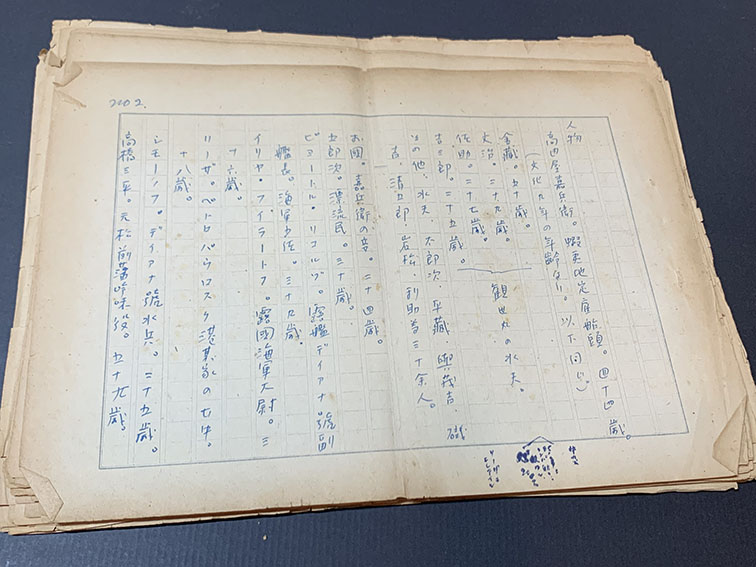 人物
高田屋嘉兵衛。蝦夷地定雇船頭。四十四歳。
(文化九年の年齢なり。以下同じ)
金蔵。五十歳。
文治。三十九歳。
観世丸の水夫。
佐助。二十七歳。
吉三郎。三十五歳。
その他、水夫 太郎次、平蔵、與茂吉、磯
吉、清五郎、岩松、利助等三十余人。
お園。嘉兵衛の妾。二十四歳。
五郎次。漂流民。三十歳。
ピョートル・リコルヅ。露艦ディアナ號副
艦長。海軍少佐。三十九歳。
イリヤ・フィラートフ。露國海軍大尉。三
十六歳。
リーザ。ペトロパウロスク港某家の女中。
十八歳。
シモーノフ。ディアナ號水兵。三十五歳。
高橋三平。元松前藩吟味役。五十九歳。